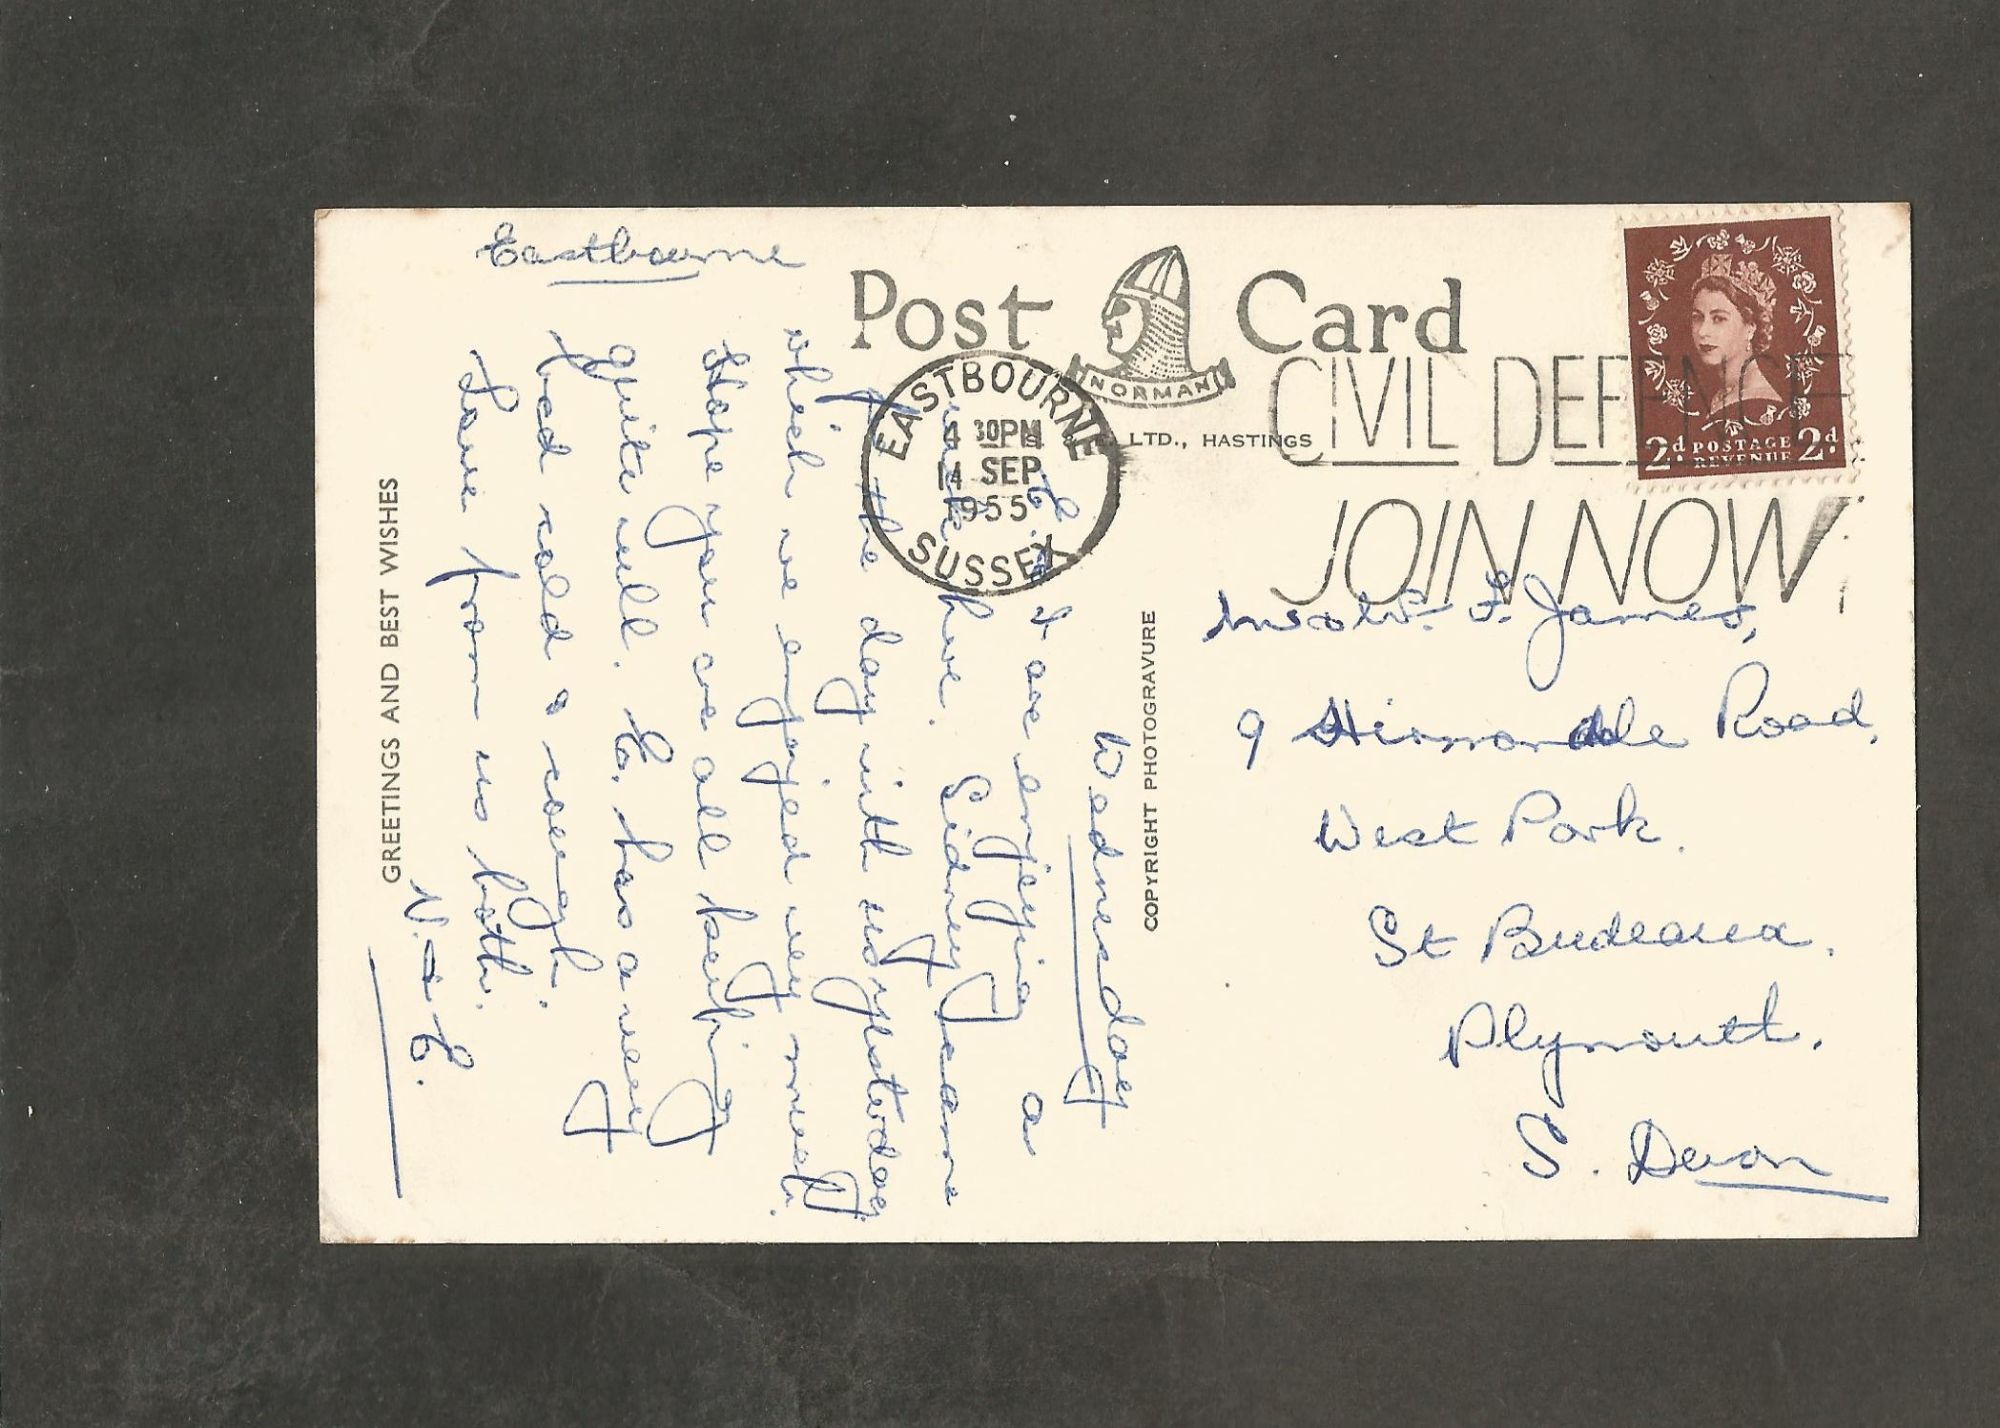 Eastbourne
Post Card
NORMAN
LTD., HASTINGS
EASTBOURNE
4 30PM
14 SEP
1955
SUSSEX
CIVIL DEFENCE
JOIN NOW
2d POSTAGE 2d
REVENUE
GREETINGS AND BEST WISHES
COPYRIGHT PHOTOGRAVURE
Wednesday
E. & I are enjoying a
week here. Sidney came
for the day with us yesterday
which we enjoyed very much.
Hope you are all keeping
quite well. E. has a very
bad cold & cough.
Love from us both.
N. & E.
F. James,
9 Road,
West Park.
St Budeaux.
Plymouth.
S. Devon